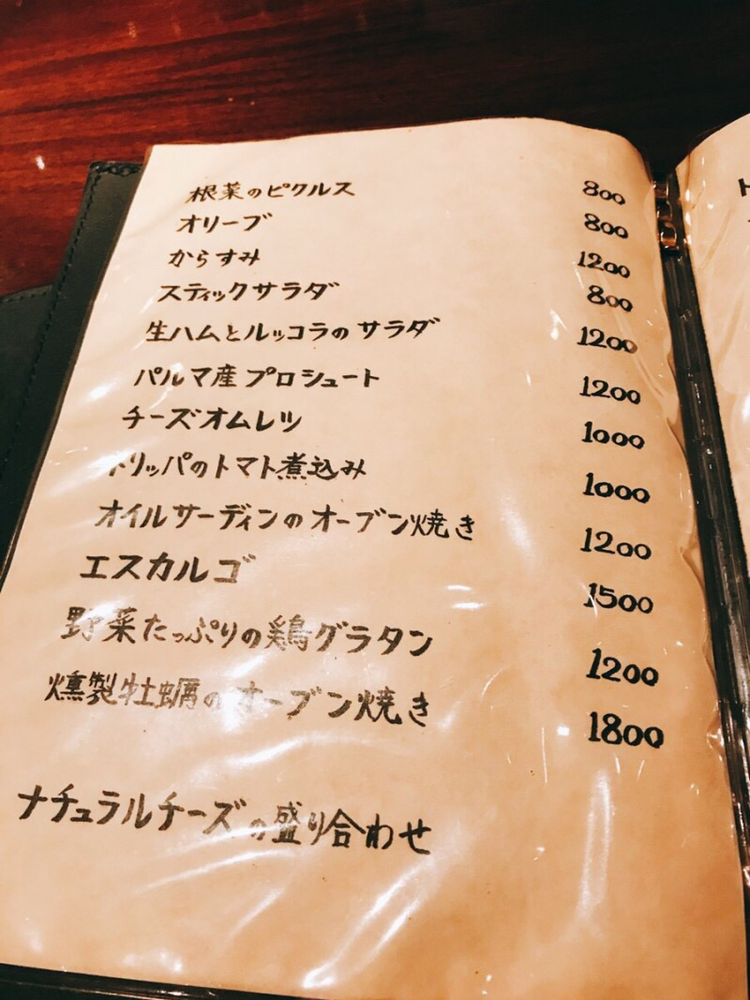 根菜のピクルス 800
オリーブ 800
からすみ 1200
スティックサラダ 800
生ハムとルッコラのサラダ 1200
パルマ産プロシュート 1200
チーズオムレツ 1000
トリッパのトマト煮込み 1000
オイルサーディンのオーブン焼き 1200
エスカルゴ 1500
野菜たっぷりの鶏グラタン 1200
燻製牡蠣のオーブン焼き 1800
ナチュラルチーズの盛り合わせ